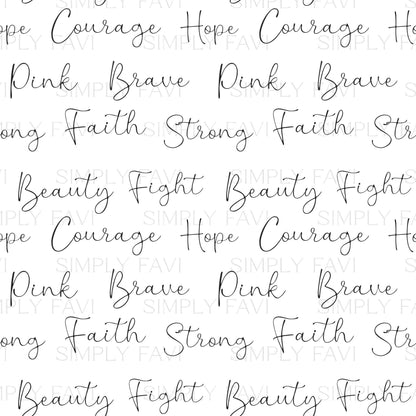 ope Courage Hope Courage Ho
SIMPLY FAVI SIMPLY FAVI
Pink Brave Pink Brave
SIMPLY FAVI SIMPLY FAVI
ong Faith Strong Faith Str
Beauty Fight Beauty Fight
SIMPLY FAVI SIMPLY FAVI
ope Courage Hope Courage Ho
SIMPLY FAVI SIMPLY FAVI
Pink Brave Pink Brave
ong Faith Strong Faith Str
SIMPLY FAVI SIMPLY FAVI
Beauty Fight Beauty Fight